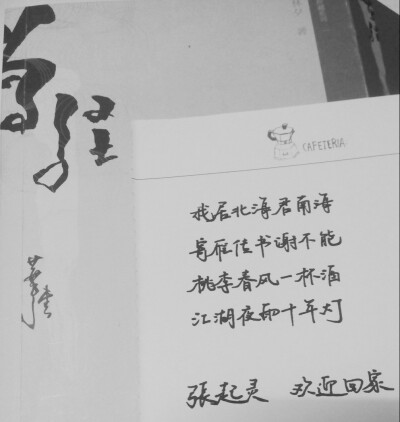 CAFETERIA
我居北海君南海
寄雁传书谢不能
桃李春风一杯酒
江湖夜雨十年灯
张起灵 欢迎回家